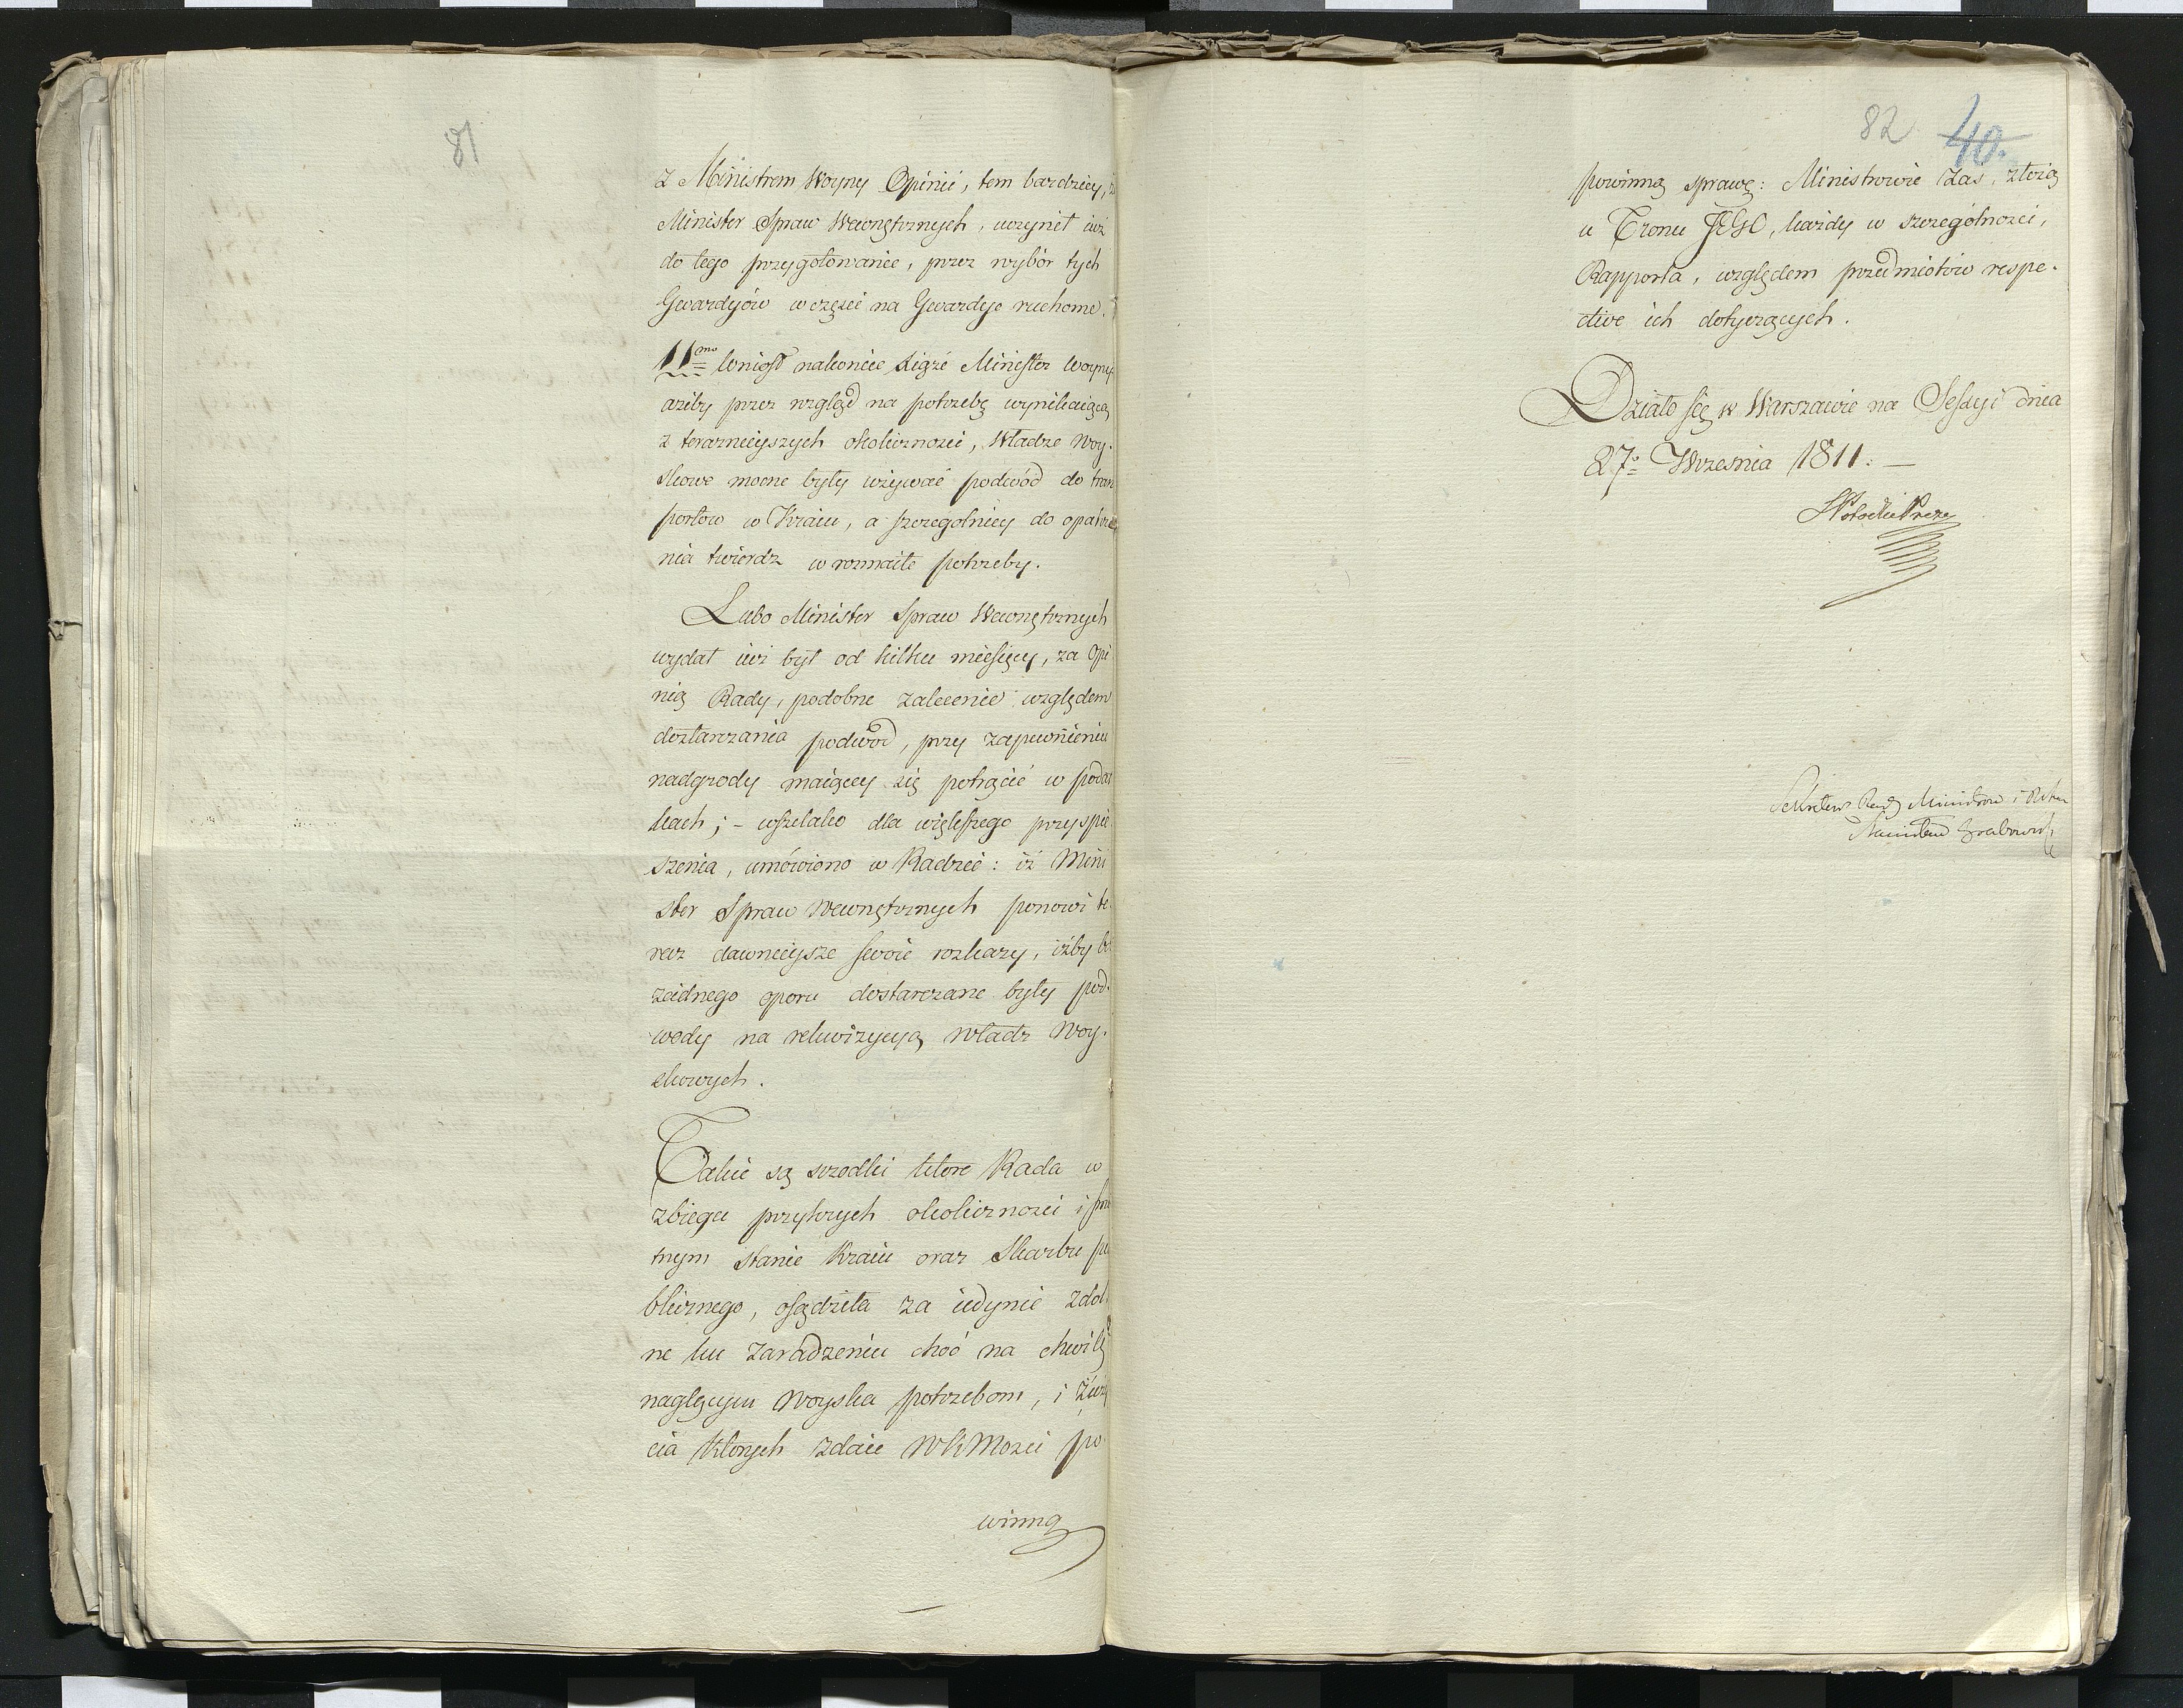 81
z Ministrem Woyny Opinii, tem bardziey,
Minister Spraw Wewnętrznych, uczynił iuż
do tego przygotowanie, przez wybór tych
Gwardyiów w części na Gwardye ruchome.
11mo Wniosł nakoniec Xiąże Minister Woyny
ażeby przez wzgląd na potrzebę wynikaiącą
z teraznieyszych okoliczności, Władze Woy-
skowe mocne były używać podwód do trans
portow w Kraiu, a szczegolniey do opatrze
nia twierdz w rozmaite potrzeby.
Lubo Minister Spraw Wewnętrznych
wydał iuż był od kilku miesięcy, za Opi
nią Rady, podobne zalecenie względem
dostarczania podwód, przy zapewnieniu
nadgrody maiącey się potrącić w podat
kach; - wszelako dla większego przyspie
szenia, umówiono w Radzie: iż Mini
ster Spraw Wewnętrznych ponowi te-
raz dawnieysze swoie rozkazy, iżby be
żadnego oporu dostarczane były pod-
wody na rekwizycyą Władz Woy-
skowych.
Takie są srzodki które Rada w
zbiegu przykrych okoliczności i smu
tnym stanie Kraiu oraz Skarbu pu
blicznego, osądziła za iedynie zdol
ne ku zaradzeniu choć na chwilę
naglącym Woyska potrzebom, i z uży
cia których zdaie WKMosci po-
winną
82 40.
powinną sprawę: Ministrowie zaś, złożą
u Tronu JEGO, każdy w szczególności,
Rapporta, względem przedmiotów respe-
ctive ich dotyczących.
Działo się w Warszawie na Sessyi dnia
27o Września 1811. —
SPotocki Prezes
Sekretarz Rady Ministrow i Stanu
Stanisław Grabowski